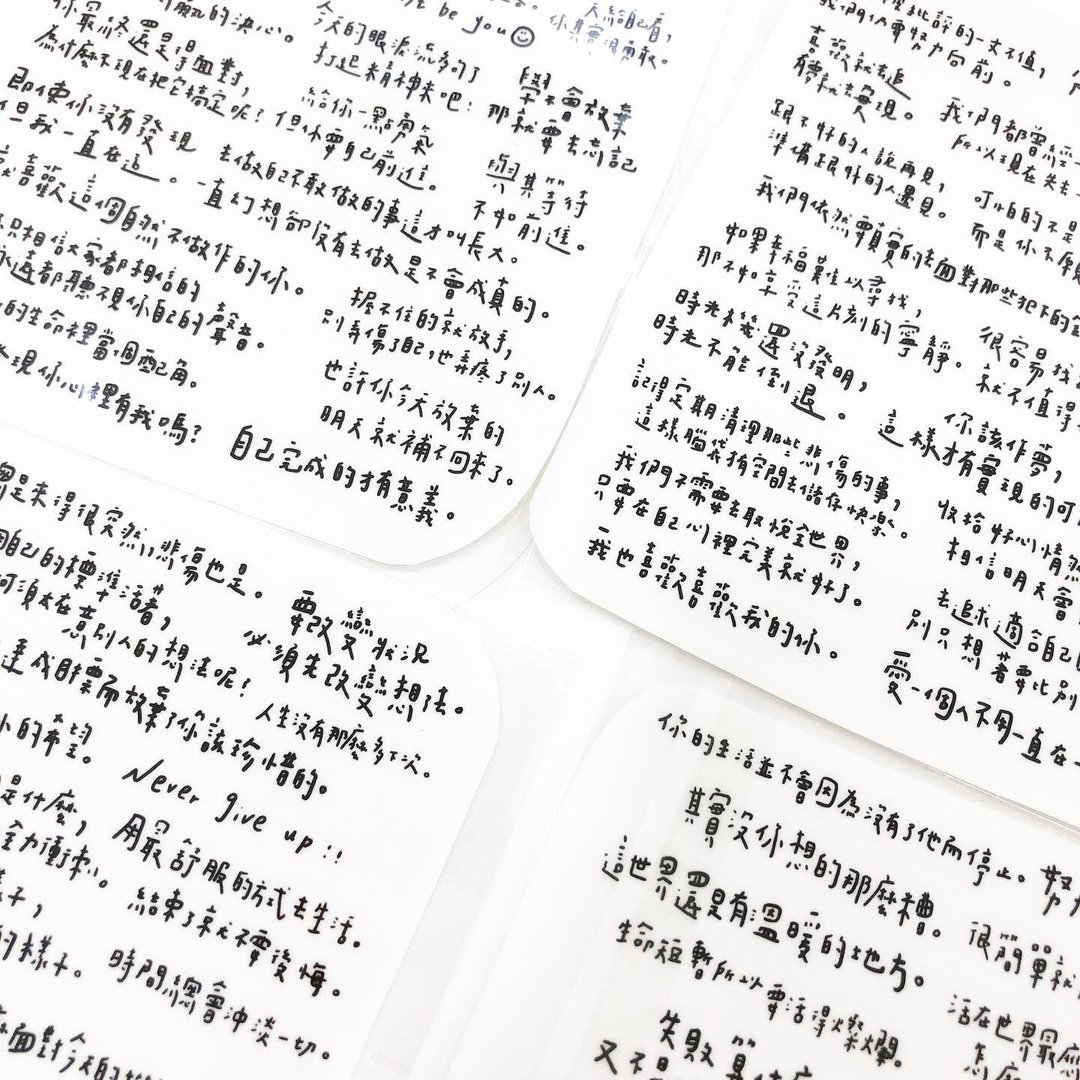 的決心。
你最終還是得面對,
為什麼不現在把它搞定呢?
即使你沒有發現
但我一直在這。
喜歡這個自然不做作的你。
只相信大家都相信的
永遠都聽不視你自己的聲音。
的生命裡當個配角。
發現你心裡有我嗎?
今天的眼淚流多的了
打起精神來吧!
be you☺
天給自己看,
你其實很勇敢。
學不會放棄
那就要去忘記
給你一點勇氣
但你要自己前進。
與其等待
不如前進。
去做自己不敢做的事這才叫長大。
一直幻想卻沒有去做是不會成真的。
握不住的就放手,
別弄傷了自己,也弄疼了別人。
也許你今天放棄的
明天就補不回來了。
自己完成的才有意義。
批評的一文不值,
我們人要努力向前。
喜歡就去追
有夢就去實現。
我們都曾經
所以現在失去
跟不好的人說再見,
準備跟對的人遇見。
可怕的不是
而是你不願
我們依然要真實的去面對那些犯下的
如果幸福難以尋找,
那不如享受這片刻的寧靜。
很容易找
就不值得
時光機還沒發明,
時光不能倒退。
你該作夢,
這樣才有實現的可
記得定期清理那些悲傷的事,
這樣腦袋才有空間去儲存快樂。
收拾好心情然
相信明天會
我們不需要去取悅全世界,
只要在自己心裡完美就好了。
去追求適合自己
別只想著要比別
我也喜歡喜歡我的你。
愛一個人不用一直在
是來得很突然,悲傷也是。
自己的標準活著,
何須太在意別人的想法呢?
要改變狀況
必須先改變想法。
達成目標而放棄了你該珍惜的。
人生沒有那麼多下次。
的希望。
Never give up!!
是什麼,
全力衝刺。
用最舒服的方式去生活。
樣子,
的樣子。
結束了就不要後悔。
時間總會沖淡一切。
面對今天的
你的生活並不會因為沒有了他而停止。
其實沒你想的那麼糟。
這世界還是有溫暖的地方。
很簡單就
生命短暫所以要活得燦爛。
活在世界最
怎麼
失敗算
又不是